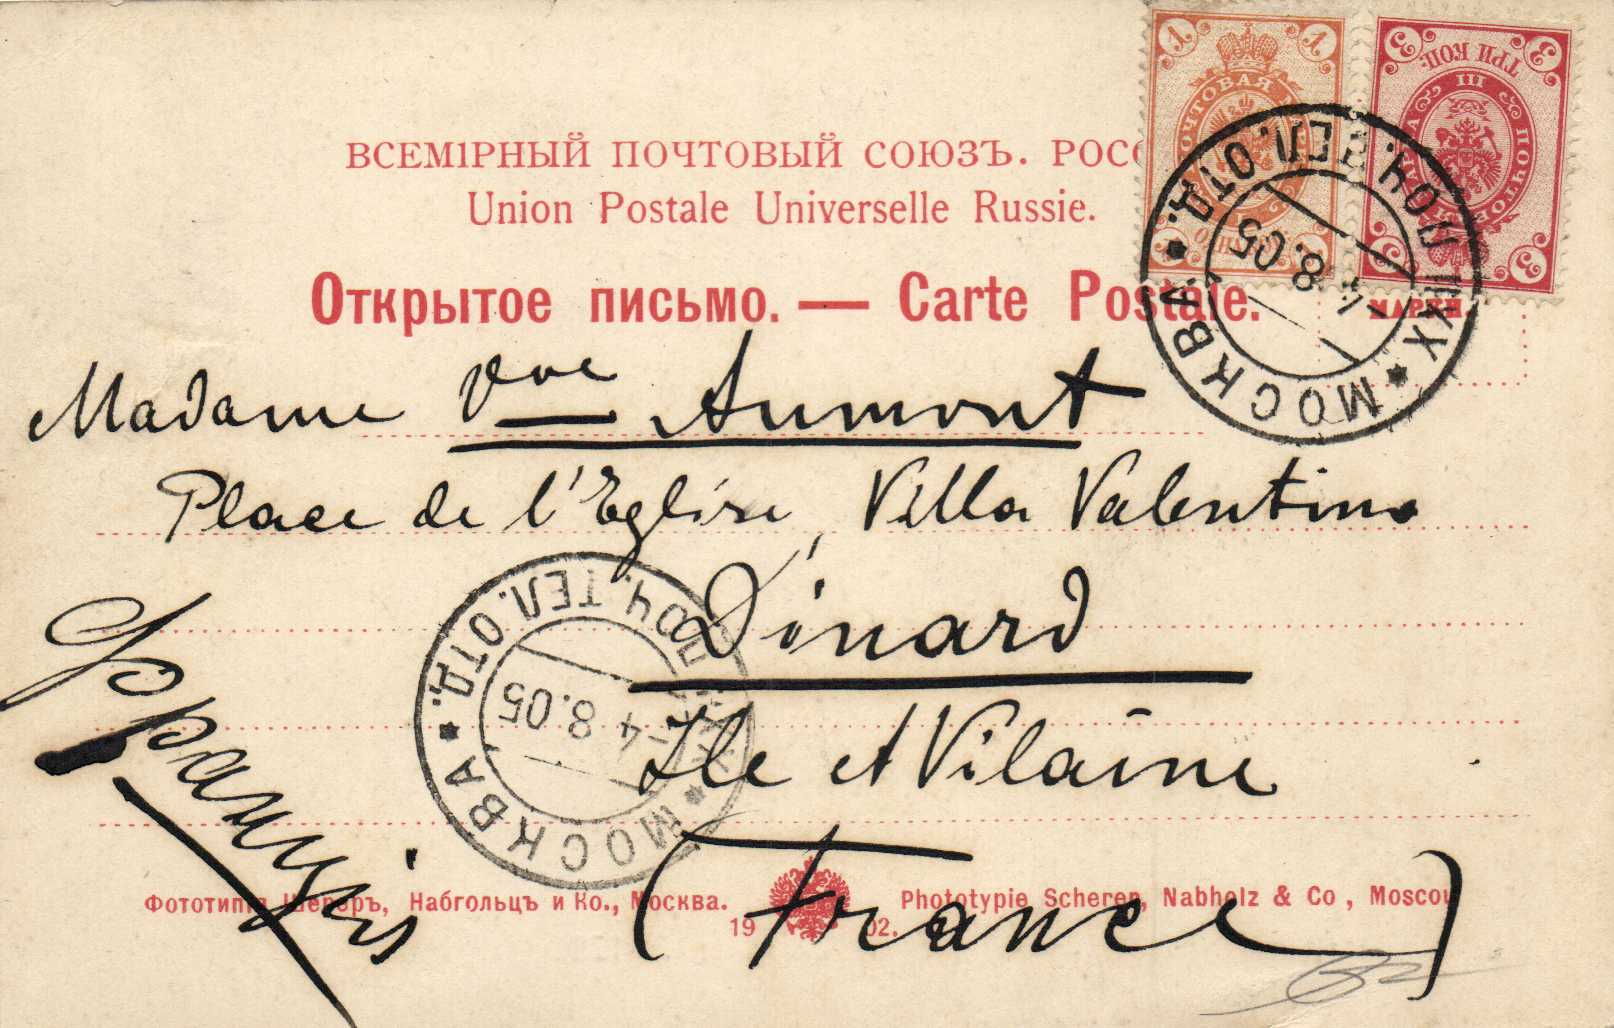 ВСЕМІРНЫЙ ПОЧТОВЫЙ СОЮЗЪ. РОСС
Union Postale Universelle Russie.
Открытое письмо. — Carte Postale.
МАРКИ.
1 1
ПОЧТОВАЯ
3 3
ТРИ КОП.
III
МОСКВА * ПОЧ. ТЕЛ. ОТД. * МОСКВА
-4 8.05
Madame Vve Aumont
Place de l'Eglise, Villa Valentine
Dinard
Ile et Vilaine
(France)
Франція
МОСКВА * ПОЧ. ТЕЛ. ОТД. * МОСКВА
-4 8.05
Фототипія Шереръ, Набгольцъ и Ко., Москва.
1902.
Phototypie Scherer, Nabholz & Co, Moscou